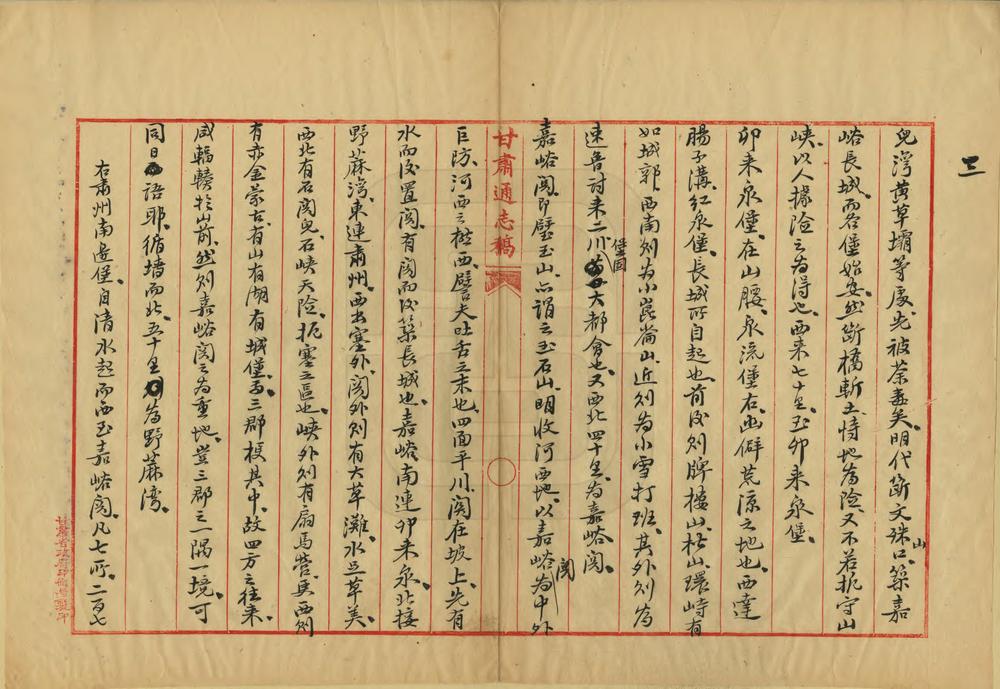 三
兒灣黄草壩等處先被荼毒矣明代斷文殊山口築嘉
峪長城而各堡始安然斷橋斬土恃地為險又不若扼守山
峡以人據險之為得也西来七十里至卯来泉堡
卯来泉堡在山腰泉流堡右幽僻荒凉之地也西達
腸子溝紅泉堡長城所自起也前後則牌樓山榨山環峙有
如城郭西南則為小崑崙山近則為小雪打班其外則為
速魯討来二川堡固大都會也又西北四十里為嘉峪関
嘉峪関即璧玉山亦謂之玉石山明收河西地以嘉峪関為中外
甘肅通志稿
巨防河西之樾西譬夫吐舌之末也四面平川関在坡上先有
水而後置関有関而後築長城也嘉峪南連卯来泉北接
野蔴湾東連肅州西出塞外関外則有大草灘水足草美
西北有石関兒石峡天險扼塞之區也峡外則有扇馬營其西則
有赤金蒙古有山有湖有城堡焉三郡梗其中故四方之往来
咸輻輳於山前然則嘉峪関之為重地豈三郡之一隅一境可
同日語耶循墻而北五十里為野蔴湾
右肅州南邊堡自清水起而西至嘉峪関凡七所二百七